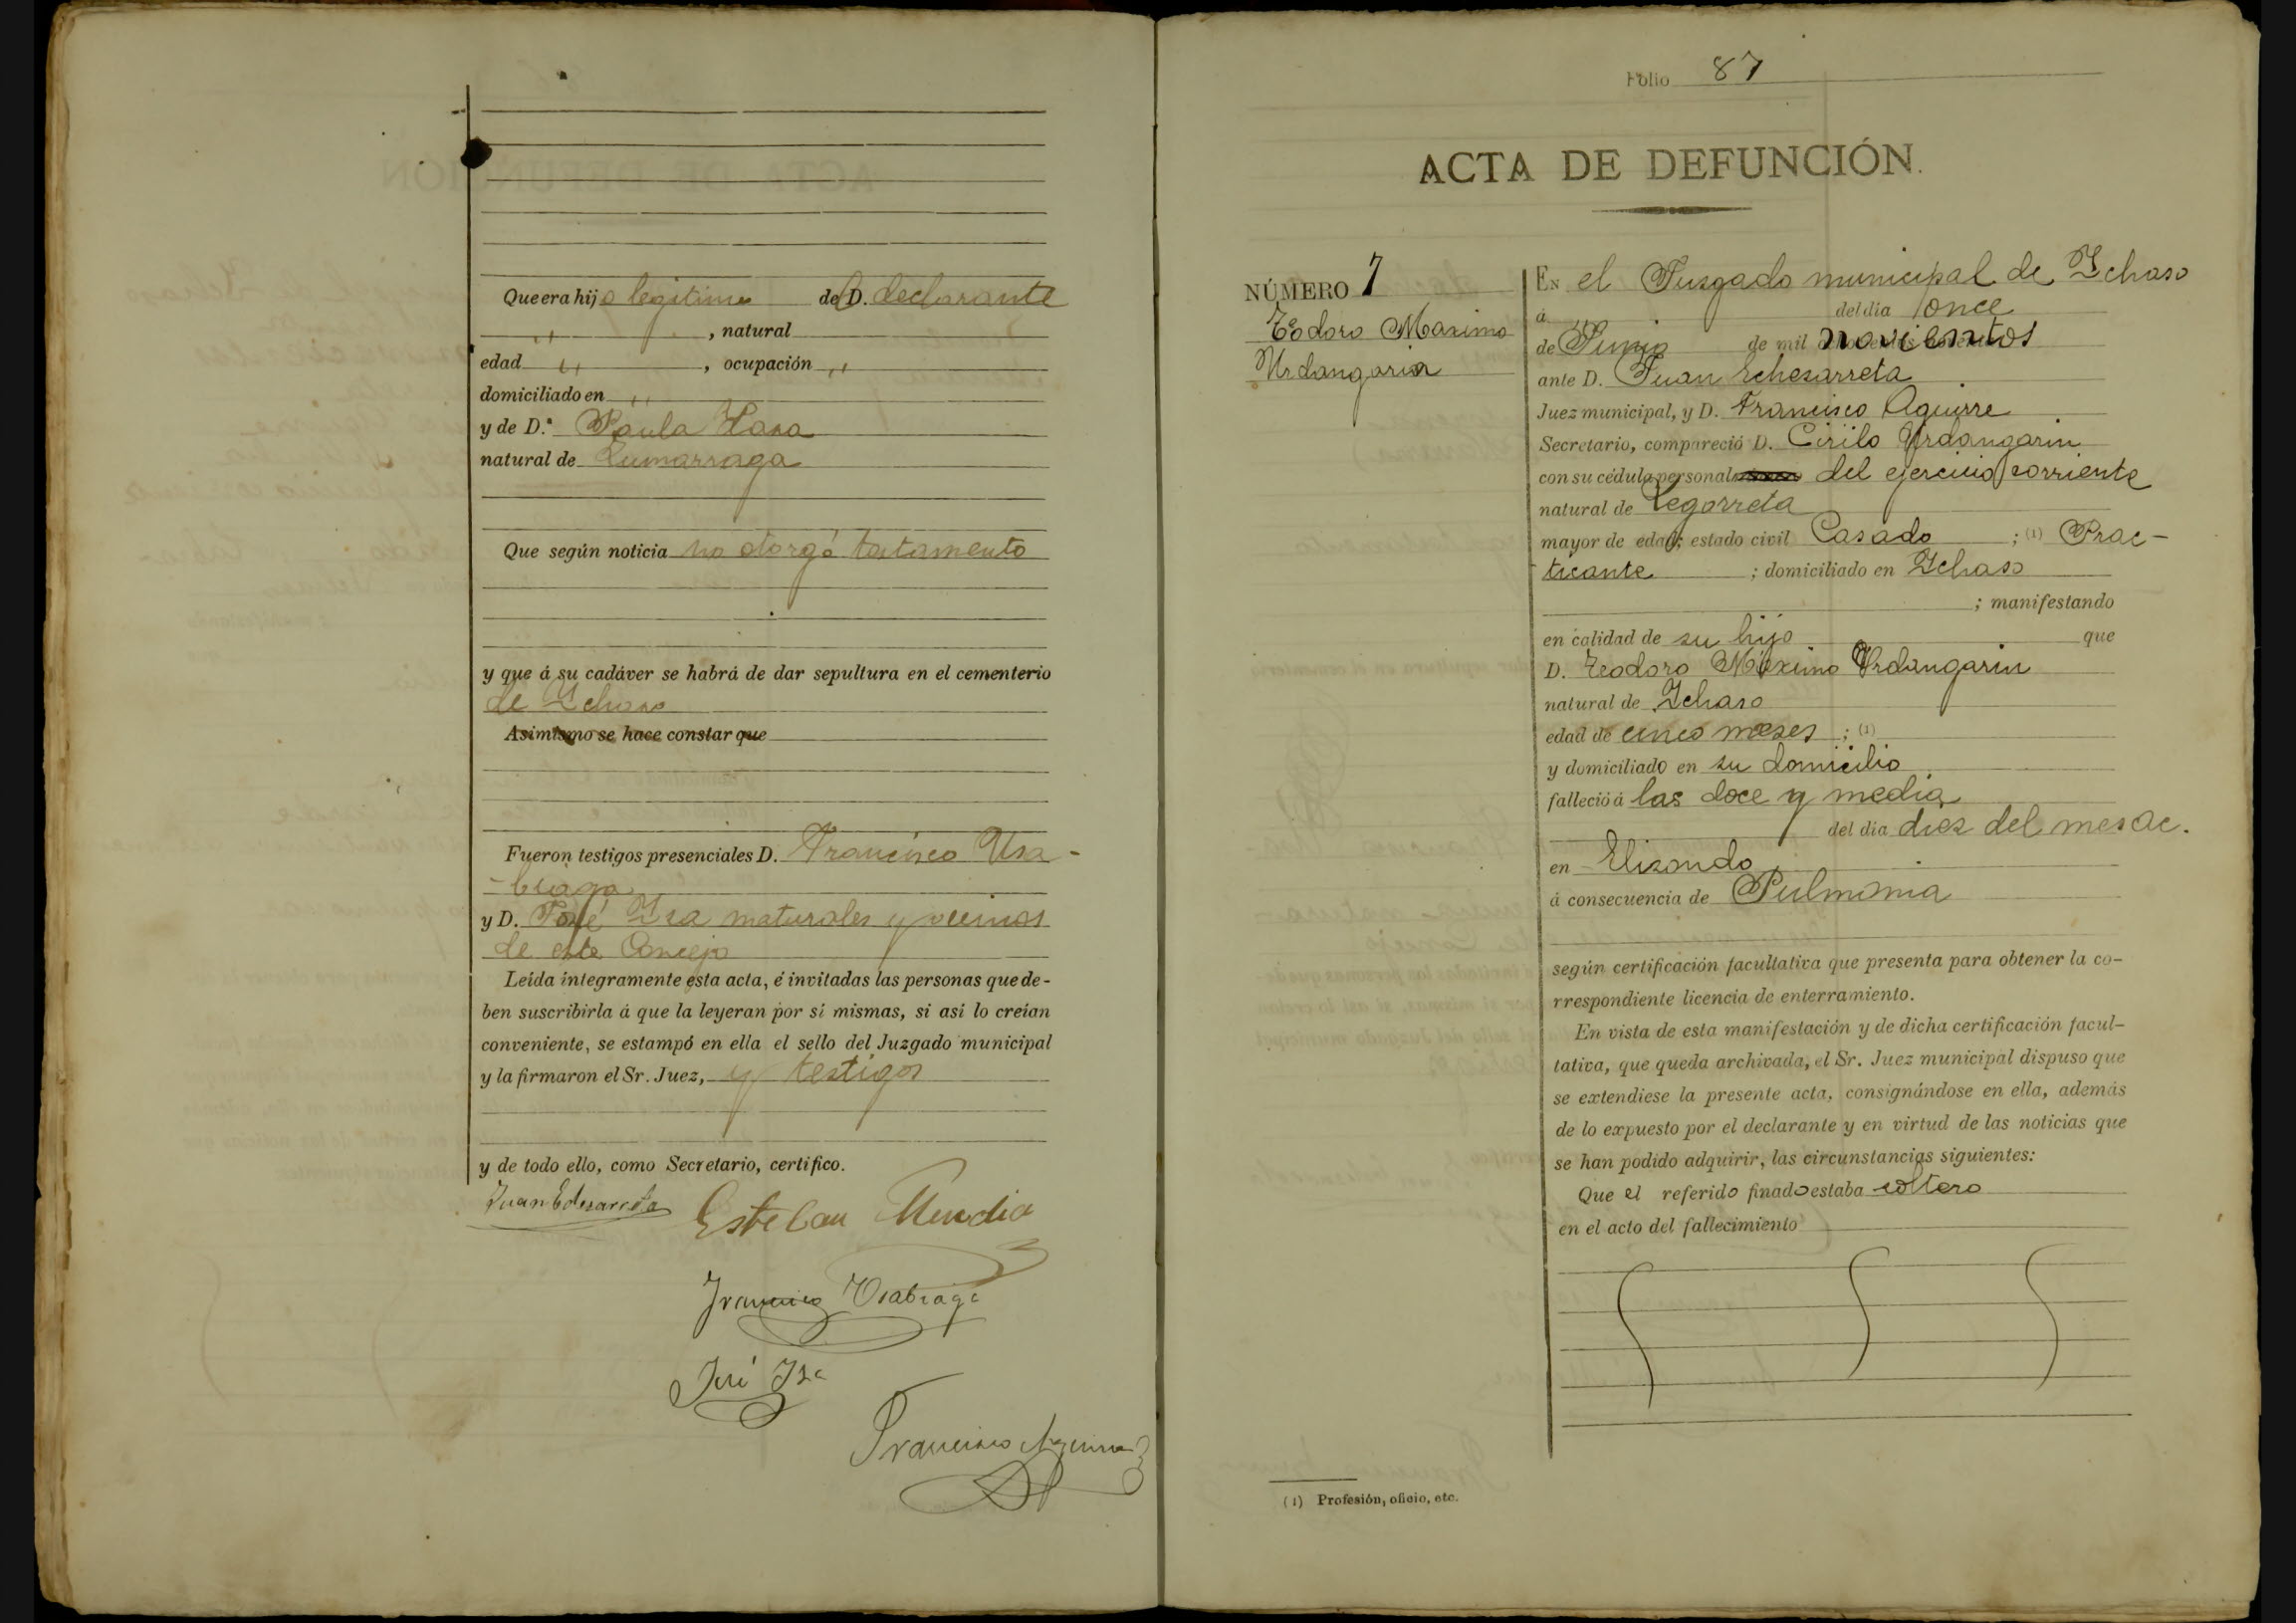 Que era hijo legitimo de D. declarante
" , natural
edad " , ocupación "
domiciliado en "
y de D.ª Paula
natural de Zumarraga
Que según noticia no otorgó tastamento
y que á su cadáver se habrá de dar sepultura en el cementerio
de Ychaso
Asimismo se hace constar que
Fueron testigos presenciales D. Francisco Usa-
-biaga
y D. José Iza naturales y vecinos
de este Concejo
Leída íntegramente esta acta, é invitadas las personas que de-
ben suscribirla á que la leyeran por sí mismas, si así lo creían
conveniente, se estampó en ella el sello del Juzgado municipal
y la firmaron el Sr. Juez, y testigos
y de todo ello, como Secretario, certifico.
Juan Echezarreta
Esteban Mendia
Francisco Usabiaga
José Iza
Francisco Aguirre
Folio 87
ACTA DE DEFUNCIÓN.
NÚMERO 7
Teodoro Maximo
Urdangarin
En el Juzgado municipal de Ychaso
á " del día once
de Junio de mil novicientos
ante D. Juan Echezarreta
Juez municipal, y D. Francisco Aguirre
Secretario, compareció D. Cirilo Urdangarin
con su cédula personal del ejercicio corriente
natural de Legorreta
mayor de edad; estado civil Casado ; (1) Prac-
ticante ; domiciliado en Ychaso
; manifestando
en calidad de su hijo que
D. Teodoro Máximo Urdangarin
natural de Ychaso
edad de cinco meses ; (1)
y domiciliado en su domicilio
falleció á las doce y media
del día diez del mes ac.
en Elizondo
á consecuencia de Pulmonia
según certificación facultativa que presenta para obtener la co-
rrespondiente licencia de enterramiento.
En vista de esta manifestación y de dicha certificación facul-
tativa, que queda archivada, el Sr. Juez municipal dispuso que
se extendiese la presente acta, consignándose en ella, además
de lo expuesto por el declarante y en virtud de las noticias que
se han podido adquirir, las circunstancias siguientes:
Que el referido finado estaba soltero
en el acto del fallecimiento
(1) Profesión, oficio, etc.